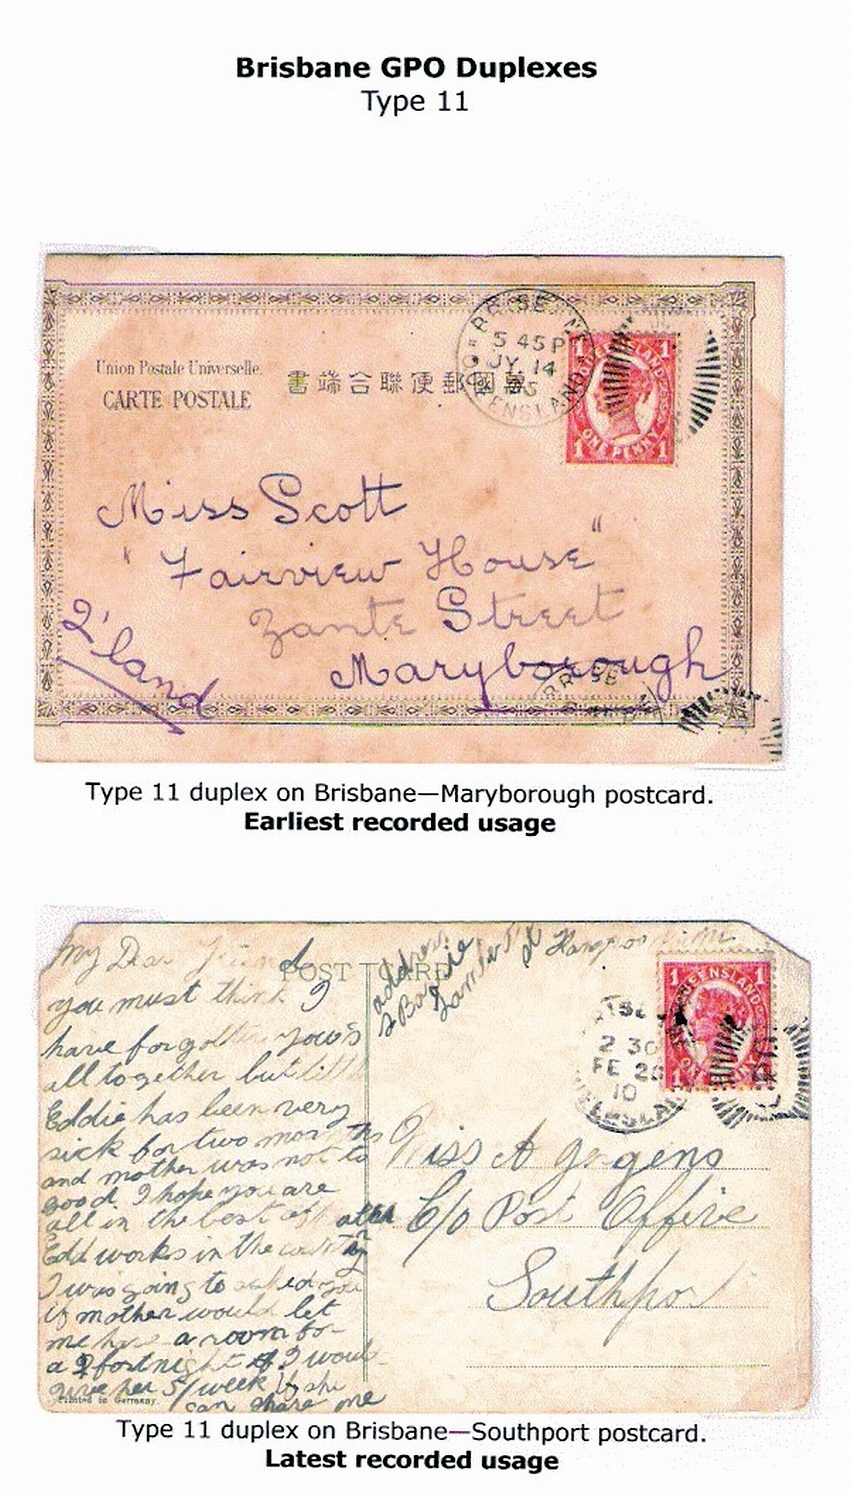 Brisbane GPO Duplexes
Type 11
BRISBANE
5 45 P
JY 14
5
QUEENSLAND
QUEENSLAND
1 1
ONE PENNY
1 1
Union Postale Universelle.
CARTE POSTALE
書端合聯便郵國萬
Miss Scott
"Fairview House"
Zante Street
Maryborough
Q'land
Type 11 duplex on Brisbane—Maryborough postcard.
Earliest recorded usage
POST CARD
My Dear Friend
you must think I
have forgotten yous
all together but little
Eddie has been very
sick for two months
and mother was not to
good I hope you are
all in the best of
Edd works in the country
I was going to asked you
if mother would let
me have a room for
a fortnight if I would
give her 5/ week if she
can share me
address
Printed in Germany.
QUEENSLAND
1 1
2 30
FE 20
10
Miss A
C/o Post Office
Southport
Type 11 duplex on Brisbane—Southport postcard.
Latest recorded usage